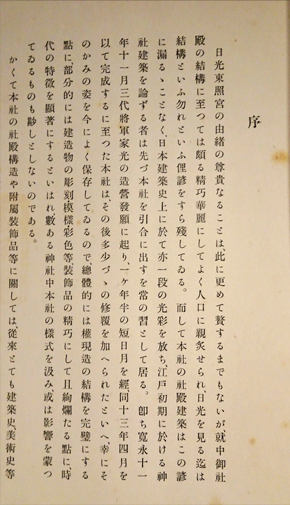 序
日光東照宮の由緒の尊貴なることは、此に更めて贅するまでもないが、就中御社
殿の結構に至つては頗る精巧華麗にしてよく人口に親炙せられ、日光を見る迄は
結構といふ勿れといふ俚諺をすら殘してゐる。而して本社の社殿建築はこの諺
に漏るゝことなく、日本建築史上に於て亦一段の光彩を放ち、江戸初期に於ける神
社建築を論ずる者は先づ本社を引合に出すを常の習として居る。卽ち寬永十一
年十一月三代將軍家光の造營發願に起り、一ケ年半の短日月を經、同十三年四月を
以て完成するに至つた本社は、その後多少づゝの修覆を加へられたといへ、幸にそ
のかみの姿を今によく保存してゐるので、總體的には權現造の結構を完璧にする
點に、部分的には建造物の彫刻模樣彩色等裝飾品の精巧にして且絢爛たる點に、時
代の特徵を顯著にするといはれ數ある神社中本社の樣式を汲み或は影響を蒙つ
てゐるものも尠しとしないのである。
かくて本社の社殿構造や附屬裝飾品等に關しては、從來とても建築史、美術史等